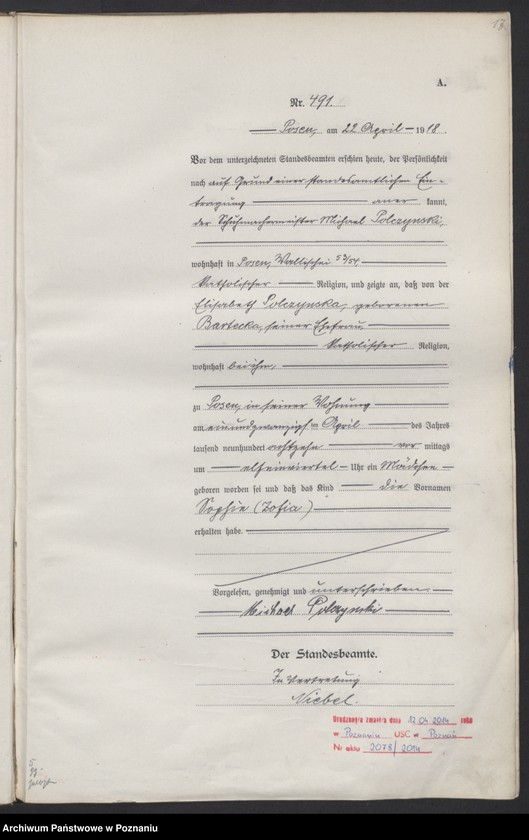 13
A.
Nr. 491.
Posen, am 22 April 1918.
Vor dem unterzeichneten Standesbeamten erschien heute, der Persönlichkeit
nach auf Grund einer standesamtlichen Ein-
tragung anerkannt,
der Schuhmachermeister Michael Polczynski,
wohnhaft in Posen, Wallischei 53/54,
katholischer Religion, und zeigte an, daß von der
Elisabeth Polczynska, geborenen
Bartecka, seiner Ehefrau,
katholischer Religion,
wohnhaft bei ihm,
zu Posen, in seiner Wohnung
am einundzwanzigsten April des Jahres
tausend neunhundert achtzehn vor mittags
um elfeinviertel Uhr ein Mädchen
geboren worden sei und daß das Kind die Vornamen
Sophie (Zofia)
erhalten habe.
Vorgelesen, genehmigt und unterschrieben.
Michael Polczynski
Der Standesbeamte.
In Vertretung
Niebel.
Urodzony/a zmarł/a dnia 12.04.2014 roku
w Poznaniu USC w Poznań
Nr aktu 2073/2014
Archiwum Państwowe w Poznaniu